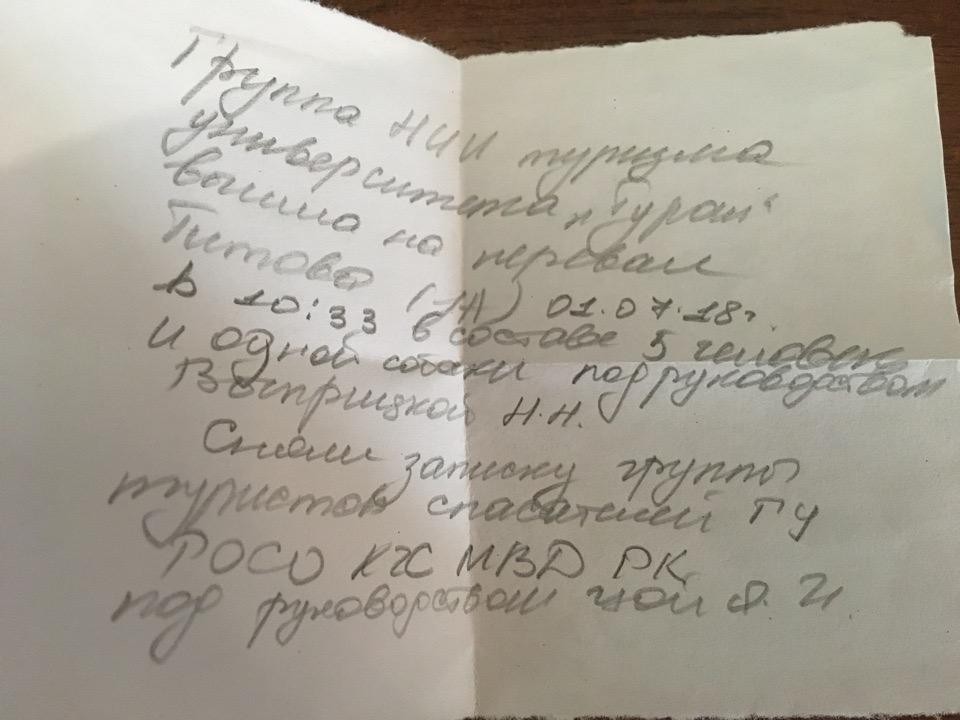 Группа НИИ туризма
университета „Туран“
вышла на перевал
Титова (1А) 01.07.18г.
в 10:33 в составе 5 человек
и одной собаки под руководством
Н.Н.
Сняли записку группы
туристов спасателей ГУ
РОСО КЧС МВД РК
под руководством Цой